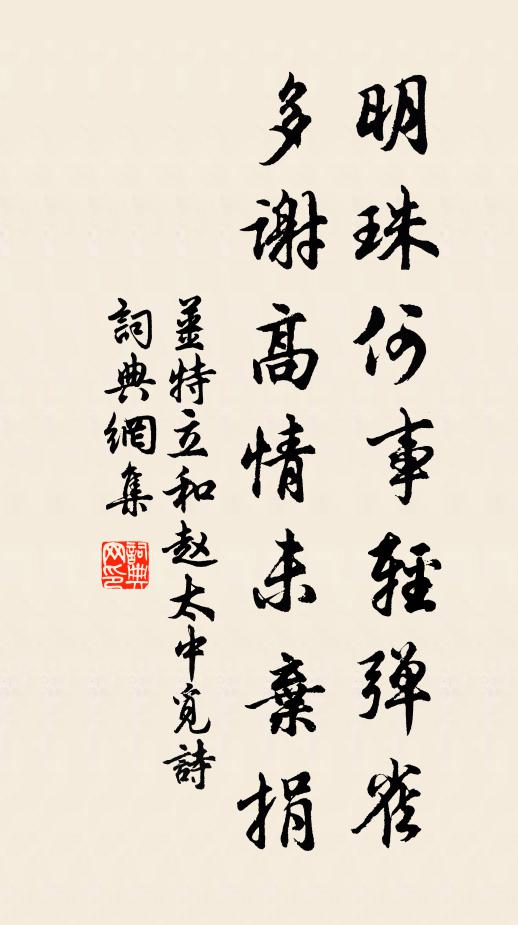 明珠何事輕彈雀
多謝高情未棄捐
姜特立和赵太中覓詩
詞典網集
詞典网印